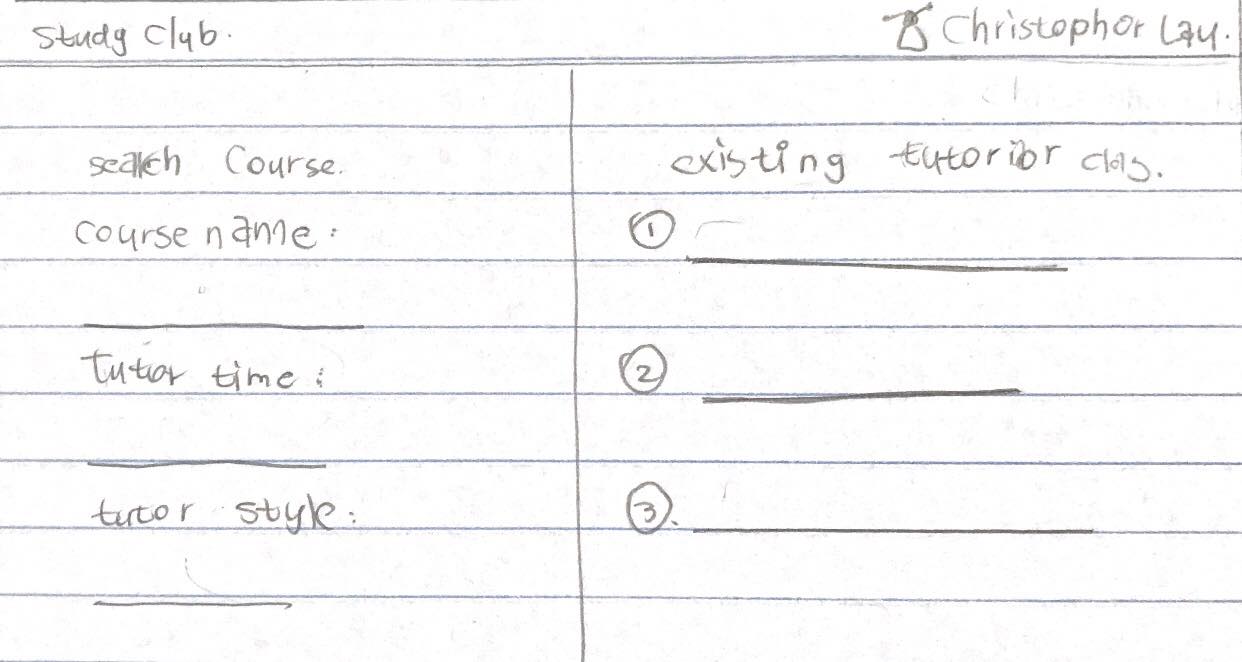 Study Club.
Christophor Lau.
search Course.
course name:
tutor time:
tutor style:
existing tutorior clas.
①
②
③.